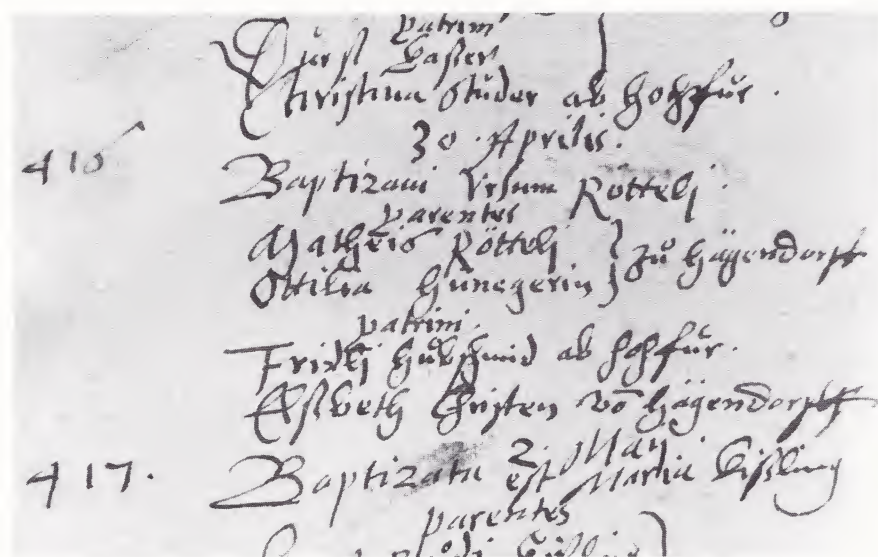 patrini
Durst Vaser
Christina Studer ab Hohfür.
30. Aprilis.
416
Baptizavi Ursum Röttelj.
parentes
Matheis Röttelj
Ottilia Hunegerin } zů Hägendorff
patrini.
Fridlj Hůbschmid ab Hohfůr.
Elsbeth Christen vō Hägendorff
2. Maij.
417. Baptizata est Maria Kißling
parentes